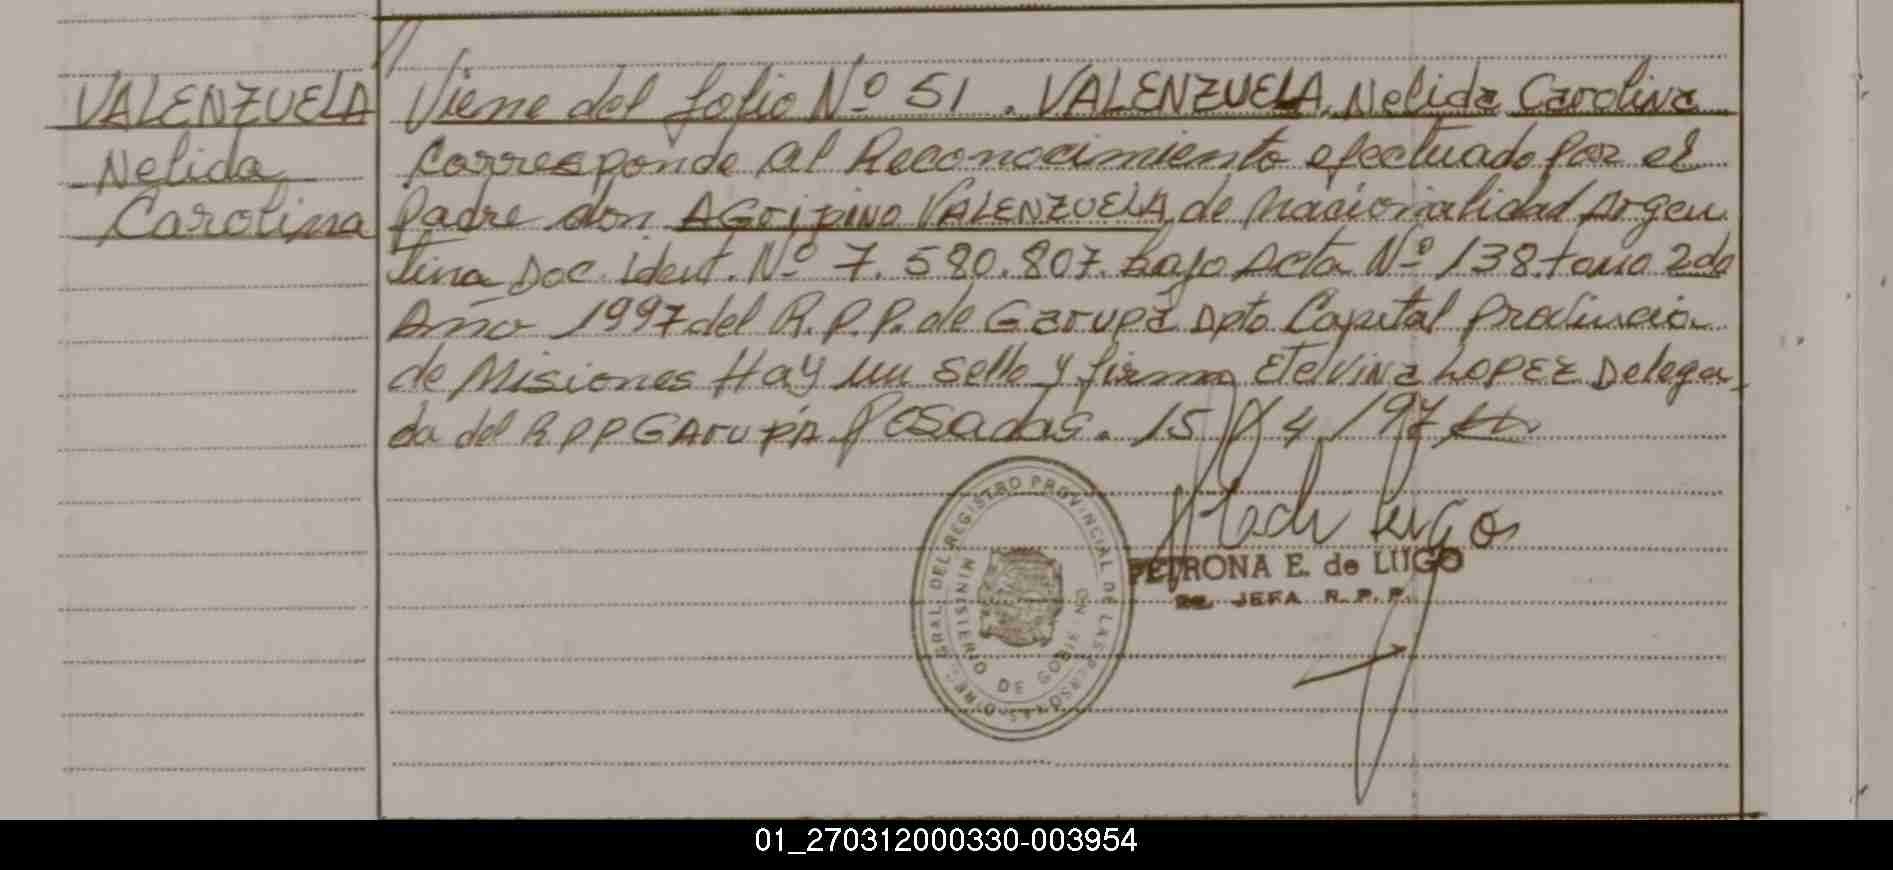 VALENZUELA
Nelida
Carolina
Viene del folio Nº 51. VALENZUELA, Nelida Carolina
Corresponde al Reconocimiento efectuado por el
Padre don AGripino VALENZUELA, de nacionalidad Argen
tina Doc. ident. Nº 7.580.807. bajo Acta Nº 138. tomo 2do
Año 1997 del R.P.P. de Garupa Dpto Capital Provincia
de Misiones Hay un sello y firma Etelvina LOPEZ Delega
da del RPP GArupA Posadas. 15/X/97
DIREC. GRAL. DEL REGISTRO PROVINCIAL DE LAS PERSONAS
MINISTERIO DE GOBIERNO
PETRONA E. de LUGO
JEFA R.P.P.
01_270312000330-003954